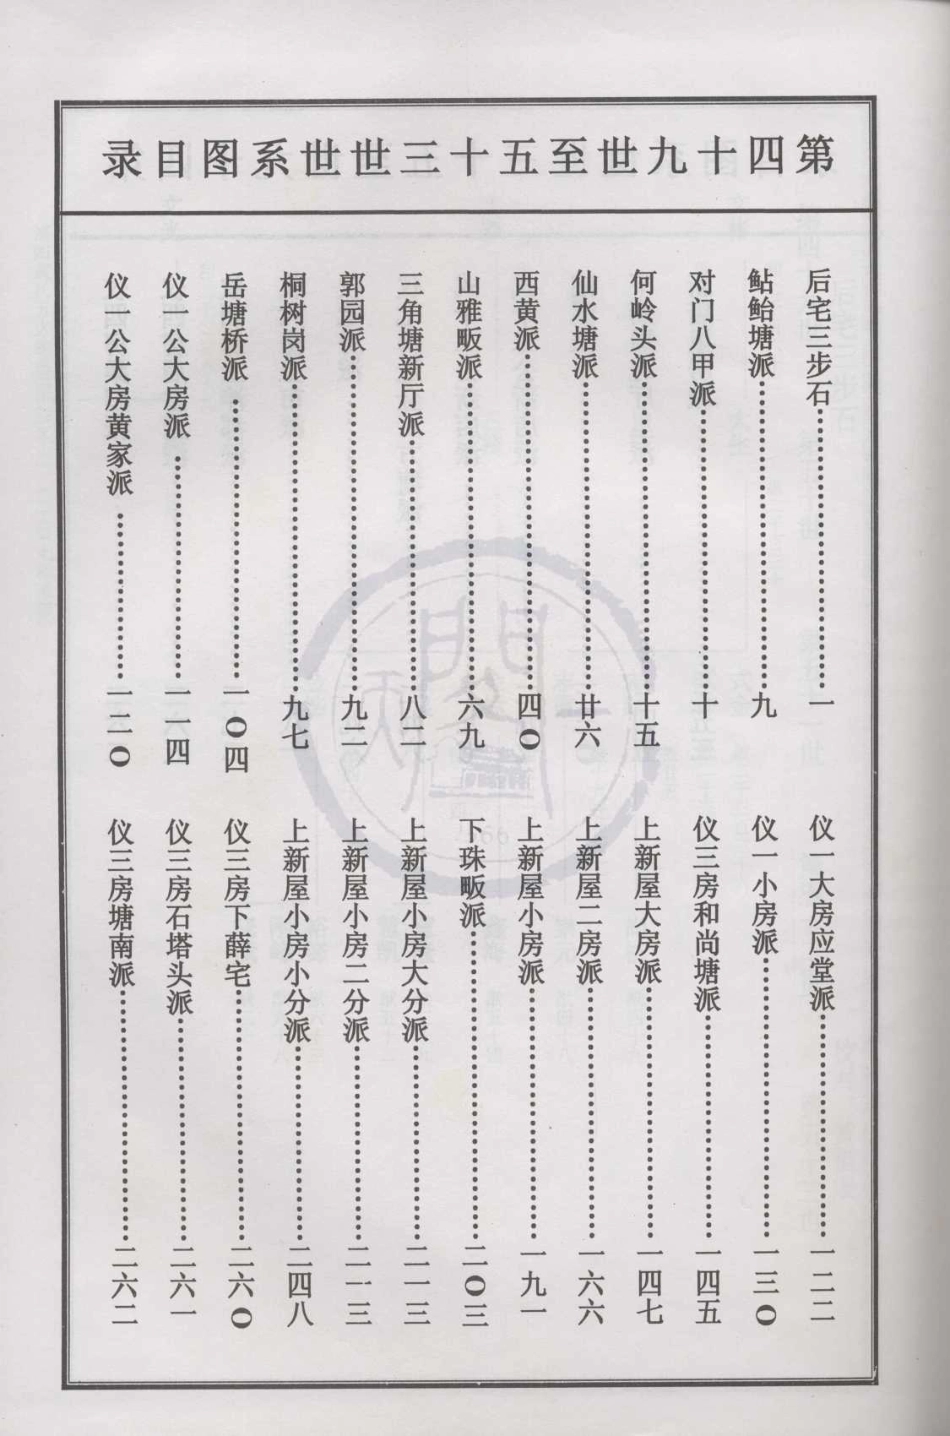 第四十九世至五十三世世系图目录
后宅三步石……一
鲇鲐塘派……九
对门八甲派……十
何岭头派……十五
仙水塘派……廿六
西黄派……四〇
山雅畈派……六九
三角塘新厅派……八二
郭园派……九二
桐树岗派……九七
岳塘桥派……一〇四
仪一公大房派……一一四
仪一公大房黄家派……一二〇
仪一大房应堂派……一二二
仪一小房派……一三〇
仪三房和尚塘派……一四五
上新屋大房派……一四七
上新屋二房派……一六六
上新屋小房派……一九一
下珠畈派……二〇三
上新屋小房大分派……二一三
上新屋小房二分派……二一三
上新屋小房小分派……二四八
仪三房下薛宅……二六〇
仪三房石塔头派……二六一
仪三房塘南派……二六二